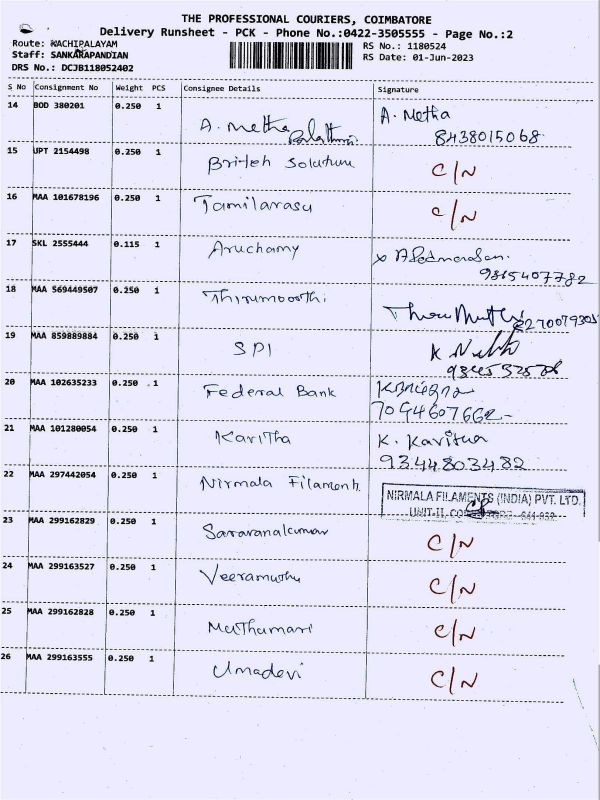 THE PROFESSIONAL COURIERS, COIMBATORE
Delivery Runsheet - PCK - Phone No.:0422-3505555 - Page No.:2
Route: NACHIPALAYAM
RS No.: 1180524
Staff: SANKARAPANDIAN
RS Date: 01-Jun-2023
DRS No.: DCJB118052402
S No Consignment No Weight PCS Consignee Details Signature
14 BOD 380201 0.250 1 A. Metha A. Metha
8438015068
15 UPT 2154498 0.250 1 British Solution C/N
16 MAA 101678196 0.250 1 Tamilarasu C/N
17 SKL 2555444 0.115 1 Aruchamy
9815407782
18 MAA 569449507 0.250 1 Thirumoorthi
19 MAA 859889884 0.250 1 SPI
20 MAA 102635233 0.250 1 Federal Bank
7094607662
21 MAA 101280054 0.250 1 Kavitha K. Kavitha
9344803482
22 MAA 297442054 0.250 1 Nirmala Filament
NIRMALA FILAMENTS (INDIA) PVT. LTD.
UNIT-II,
23 MAA 299162829 0.250 1 Saravanakumar C/N
24 MAA 299163527 0.250 1 Veeramuthu C/N
25 MAA 299162828 0.250 1 Muthumari C/N
26 MAA 299163555 0.250 1 Umadevi C/N